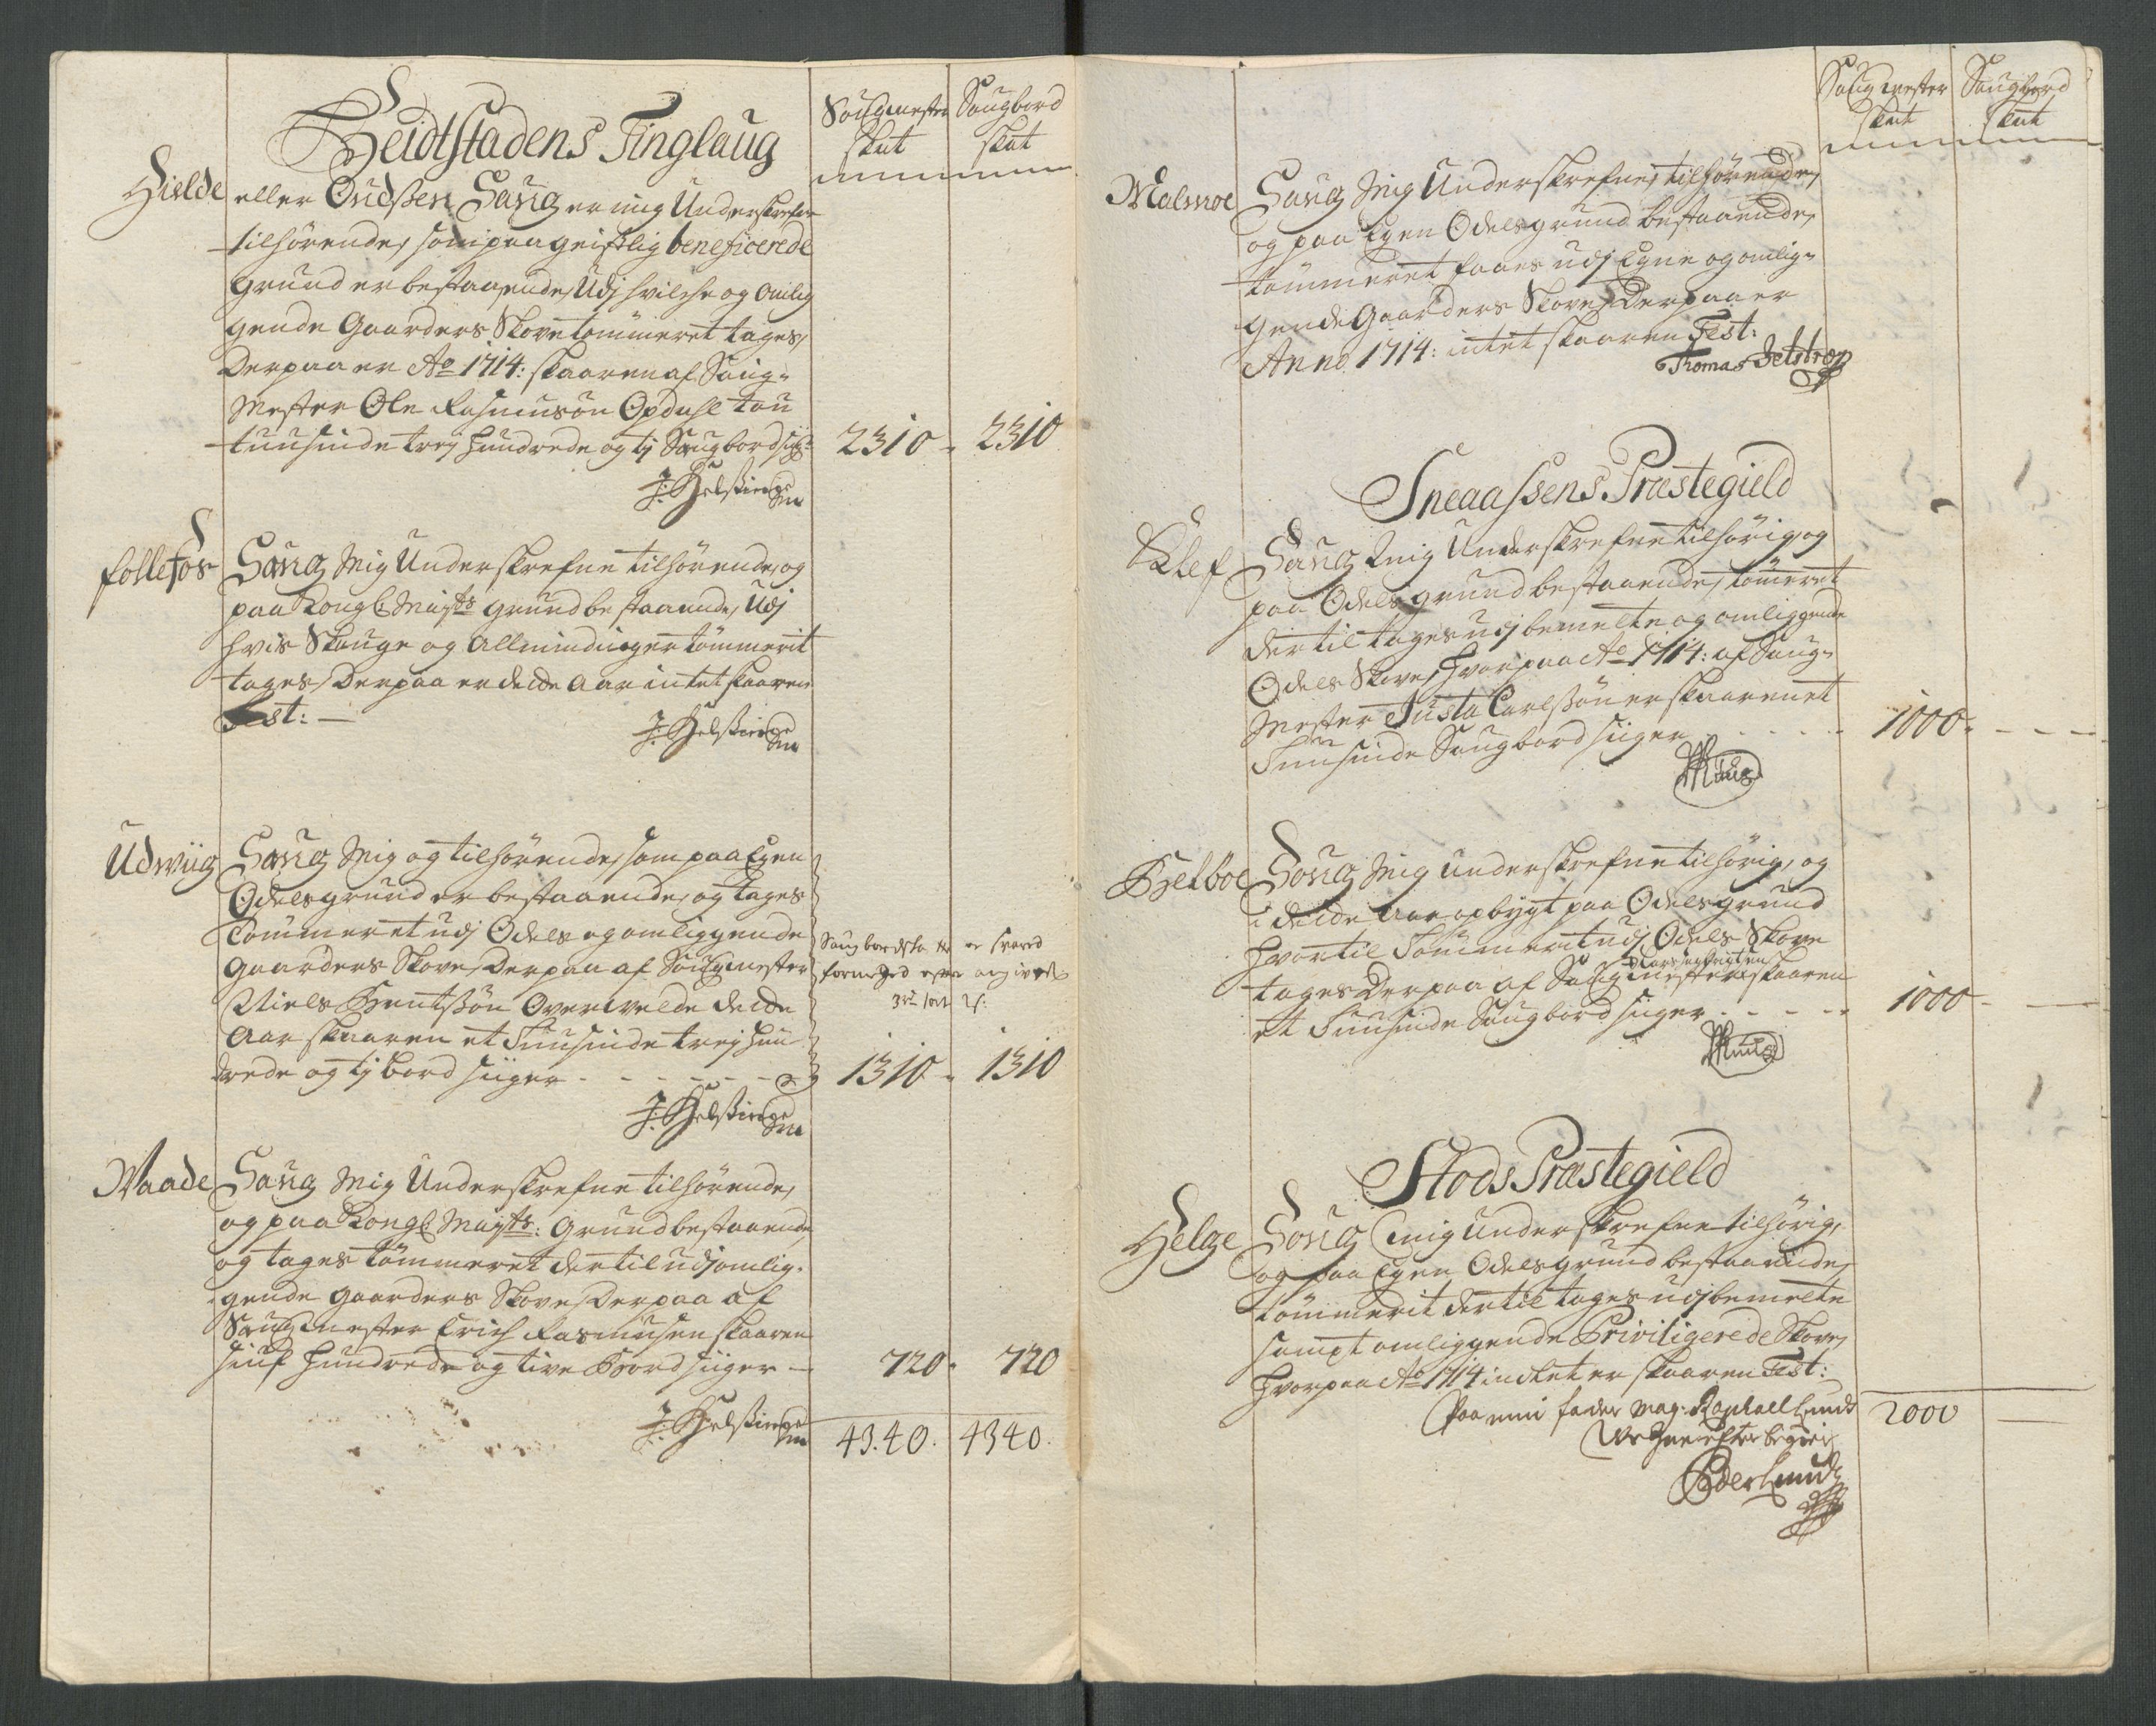 Beidtstadens Tinglaug
Saugmester Skat
Saugbord Skat
Hielde eller Oudssen Saug er mig Underskrefne
tilhörende, som paa geistlig beneficerede
grund er bestaaende, Udj hvilche og omlig
gende Gaarders Skove tømmeret tages,
Derpaa er Ao 1714: skaaren af Saug-
Mester Ole Rasmusøn Opdahl tou
tuusinde trej Hundrede og tj Saugbord siger 2310 - 2310
J: Helssing
follefos Saug Mig Underskrefne tilhörende, og
paa Kongl: Mayts grund bestaaende, Udj
hvis Skauge og Allmindinger tömmerit
tages, Derpaa er dede Aar intet skaaren
Test: —
J: Helssing
Udwiig Saug Mig og tilhörende, som paa Egen
Odels grund er bestaaende, og tages
Tömmeret udj Odels og omliggende
Gaarders Skove, Derpaa af Saugmester
Niels Bentssön Overvelde dede
Aar skaaren et Tuusinde trej Hun
drede og tj bord siiger - - - - 1310 - 1310
Saugbordska er svared
J: Helssing
Waade Saug Mig Underskrefne tilhörende,
og paa Kongl: Mayts: Grund bestaaende
og tages tömmeret dertil udj omlig-
gende Gaarders Skove, Derpaa af
Saugmester Erich Rasmusen skaaren
Siuf Hundrede og tive Bord siiger — 720 - 720
J: Helssing
43.40. 4340.
Saugmester Skat
Saugbord Skat
Malmoe Saug Mig Underskrefne, tilhörende,
og paa Egen Odels grund bestaaende,
tömmeret faaes udj Egne og omlig-
gende Gaarders Skove, Derpaa er
Anno 1714: intet skaaren Test:
Thomas Jetstrop
Sneaassens Præstegield
Klef Saug Mig Underskrefne tilhörig, og
paa Odels grund bestaaende, tömeret
dertil tages udj bemelte og omliggende
Odels Skove, Hvorpaa Ao 1714: af Saug-
Mester Justa Carlssön er skaaren et
Tuusinde Saugbord siiger - - - - 1000 - - - -
Belboe Saug Mig underskrefne tilhörig, og
i dede Aar opbygt paa Odels grund
Hvortil Tömmeret udj Odels Skove
tages Derpaa af Saugmester skaaren
et Tuusinde Saugbord siiger - - - - 1000 - —
Stods Præstegield
Helge Saug mig underskrefne tilhörig,
og paa Egen Odels grund bestaaende,
tömmerit dertil tages udj bemelte
sampt omliggende Priviligerede Skove,
Hvorpaa Ao 1714 indtet er skaaren Test:
Paa min fader Mag: Raphael Lunds
Peder Lund
2000 —